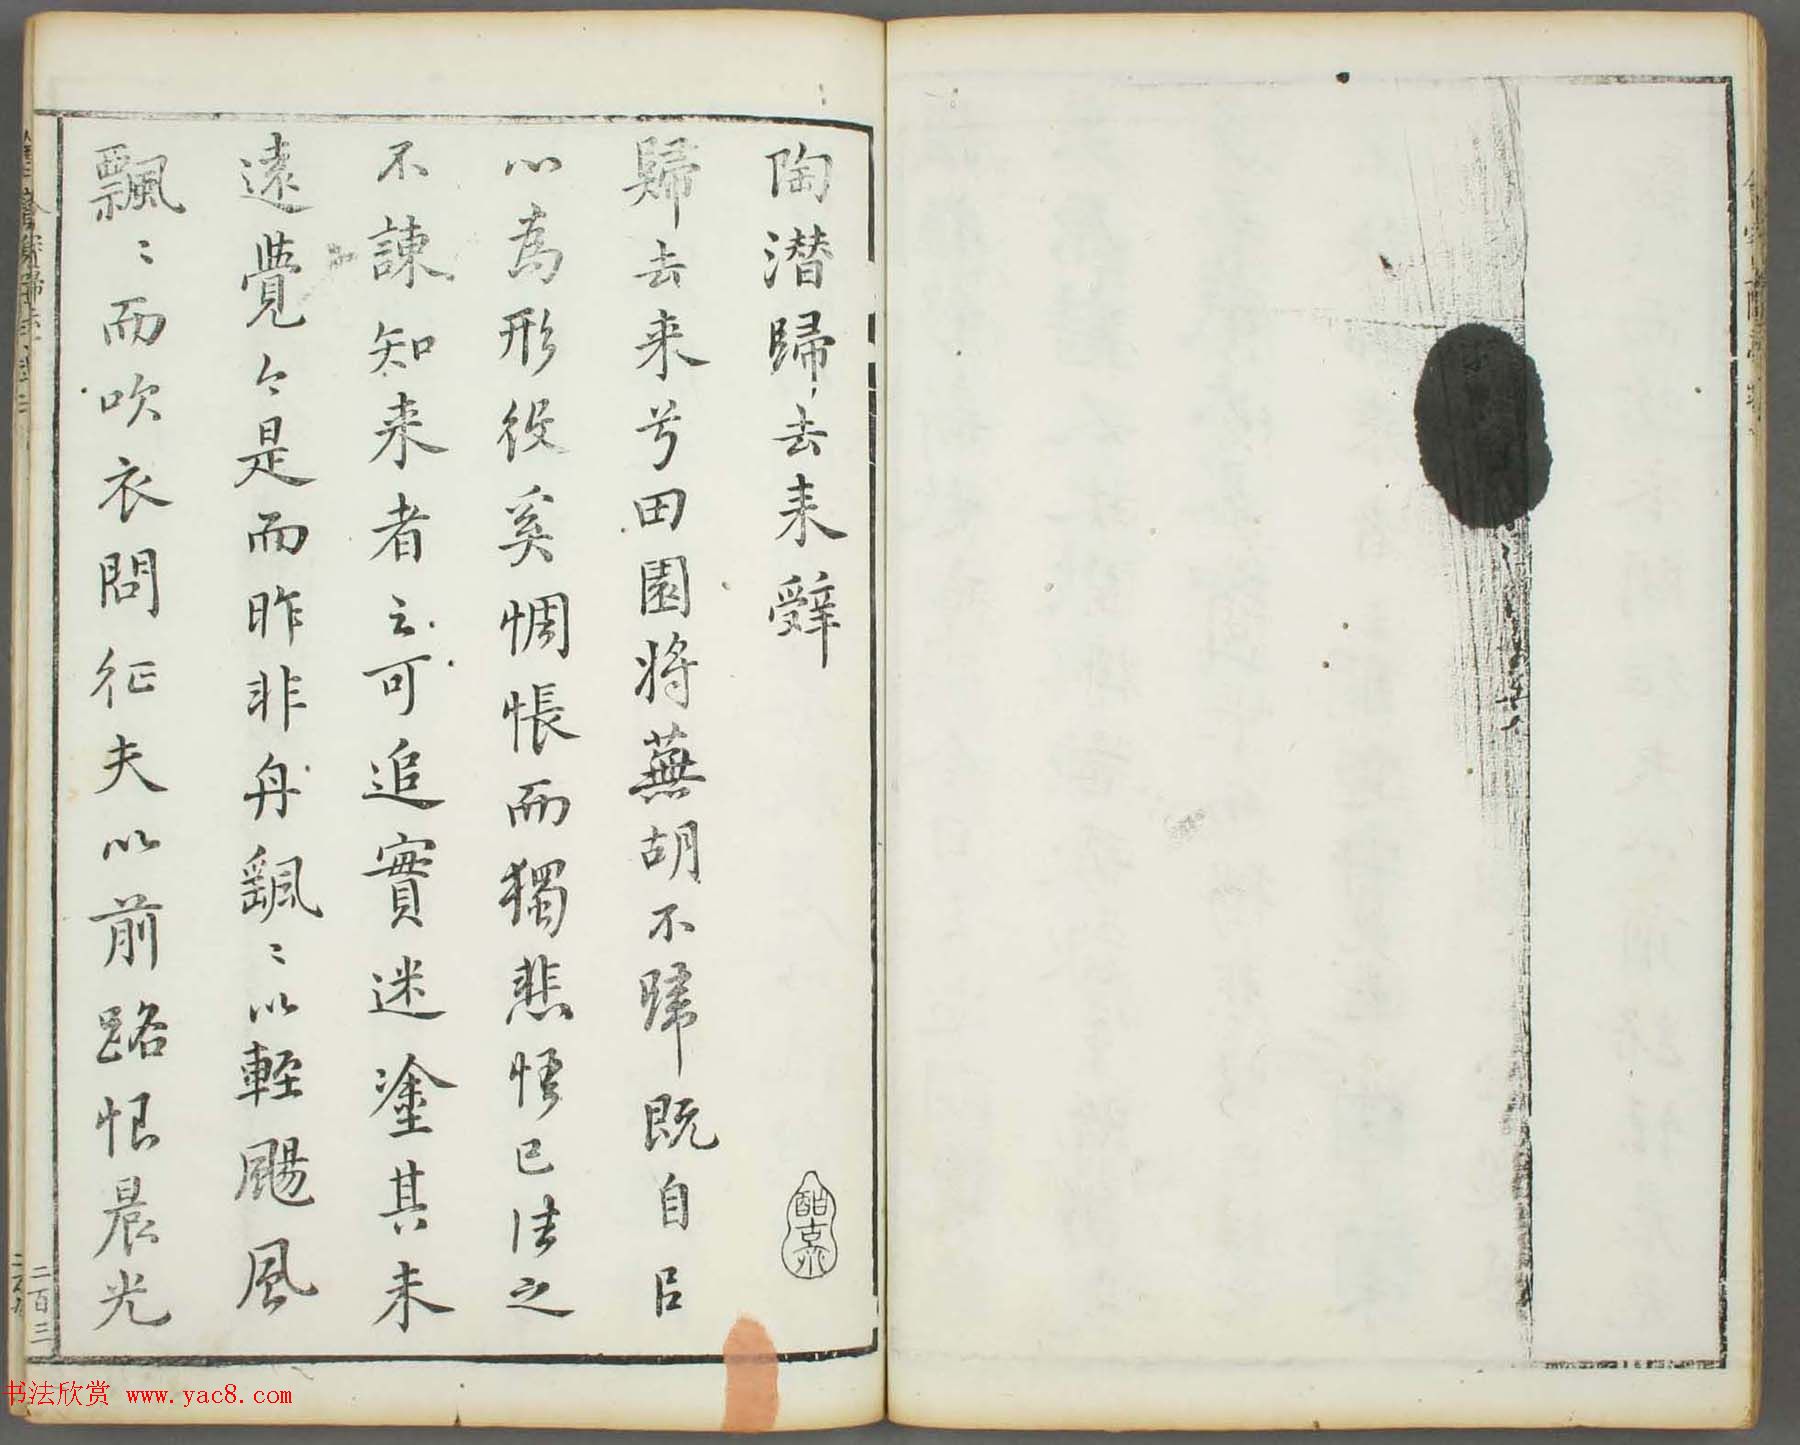 陶潛歸去来辭
歸去来兮田園將蕪胡不歸既自㠯
心為形役奚惆悵而獨悲悟已往之
不諫知来者之可追實迷塗其未
遠覺今是而昨非舟飄〻以輕颺風
飄〻而吹衣問征夫以前路恨晨光
二百三
书法欣赏 www.yac8.com